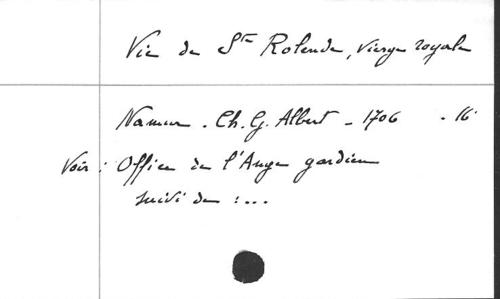 Vie de Ste Rolende, Vierge royale
Namur - Ch. G. Albert - 1706 - 16°
Voir : Office de l'Ange gardien
suivi de : ...